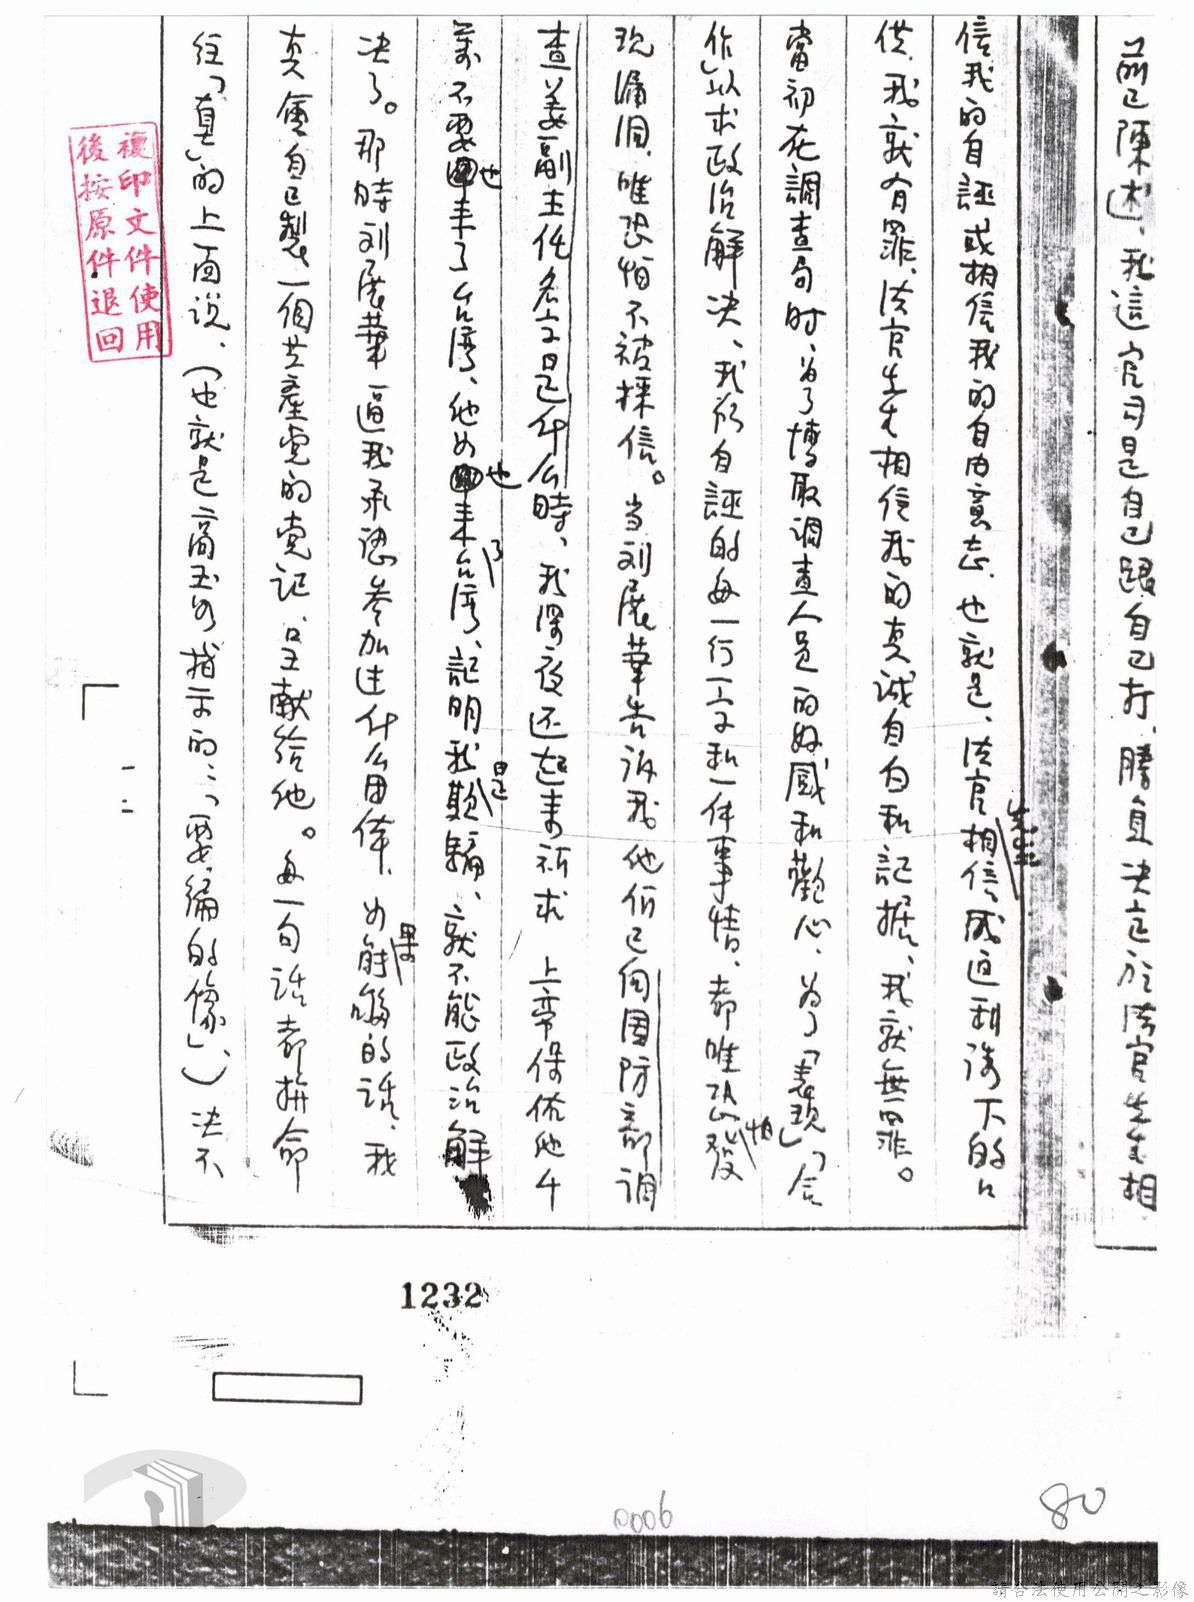 前已陳述，我這官司是自己跟自己打，勝負決定於法官先生相
信我的自誣或相信我的自由意志，也就是，法官先生相信威迫利誘下的口
供，我就有罪，法官先生相信我的真誠自白和記据，我就無罪。
當初在調查局时，为了博取調查人員的好感和歡心，为了「表現」「合
作」以求政治解决，我所自誣的每一行一字和一件事情，都唯恐怕發
現漏洞，唯恐怕不被採信。当刘展華告诉我他们已向国防部調
查姜副主任名字是什么時，我深夜还起來祈求 上帝保佑他千
萬不要也來了台湾，他如也來了台湾，記明我是欺騙，就不能政治解
决了。那時刘展華逼我承認参加过什么团体，如果能够的話，我
真會自己製一個共產党的党記，呈献給他。每一句話都拚命
往「真」的上面說，（也就是高玉 指示的：「要編的像」，）决不
複印文件使用
後按原件退回
1232
0006
80
請合法使用公開之影像